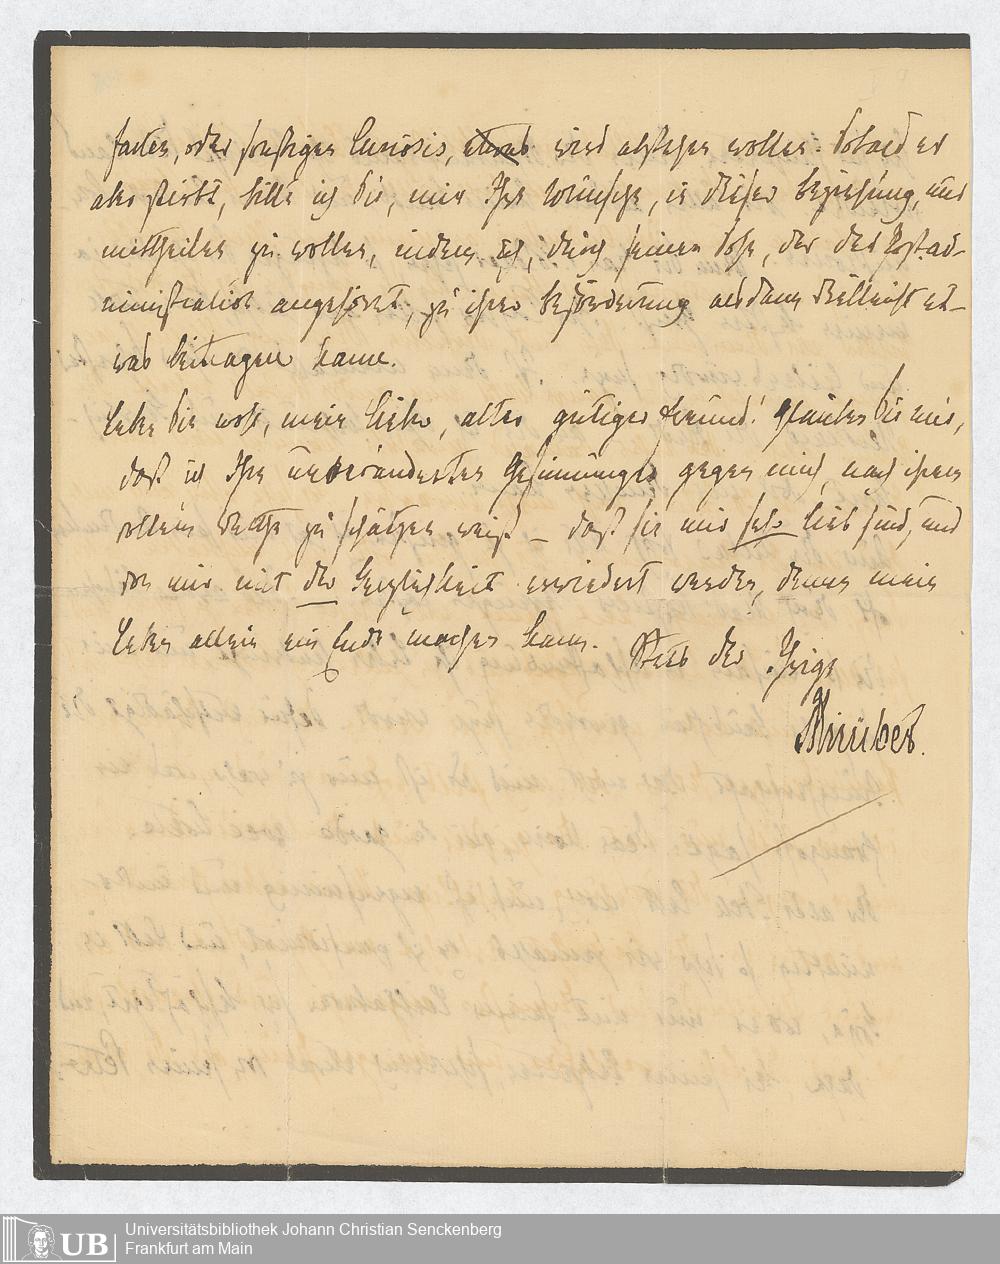 facten, oder sonstigen Curiosis, etwas wird ablassen wollen. Sobald er
also stirbt, bitte ich Sie, mir Ihre Wünsche, in dieser Beziehung, nur
mittheilen zu wollen, indem ich, durch seinen Sohn, der der Postad-
ministration angehört, zu ihrer Beförderung alsdann vielleicht et-
was beitragen kann.
Leben Sie wohl, mein lieber, alter gütiger Freund! Glauben Sie mir,
daß ich Ihre unveränderten Gesinnungen gegen mich, nach ihrem
vollem Werthe zu schätzen weiß – daß sie mir sehr lieb sind, und
von mir mit der Herzlichkeit erwiedert werden, denen mein
Leben allein ein Ende machen kann. Stets der Ihrige
Universitätsbibliothek Johann Christian Senckenberg
Frankfurt am Main
UB